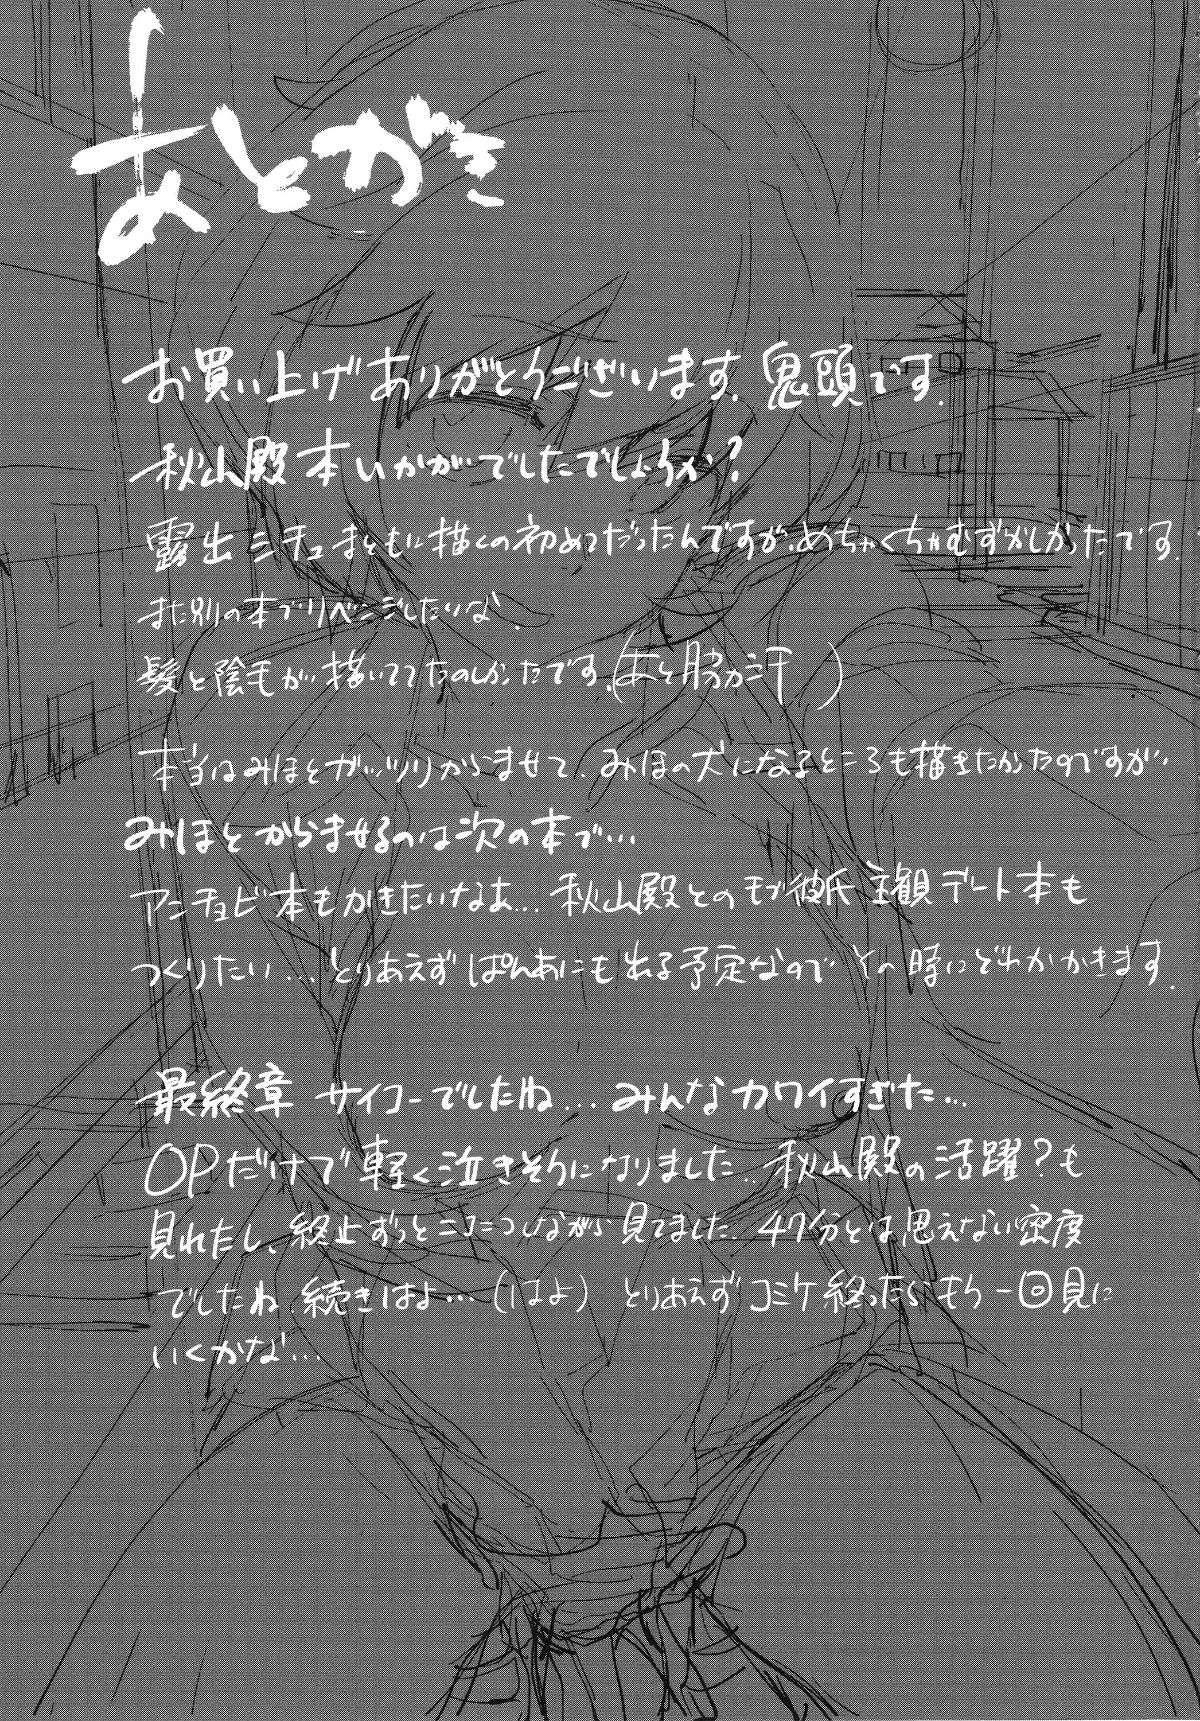 あとがき
お買い上げありがとうございます。鬼頭です。
秋山殿本いかがでしたでしょうか?
露出シチュまともに描くの初めてだったんですが、めちゃくちゃむずかしかったです。
また別の本でリベンジしたいな。
髪と陰毛が描いててたのしかったです。(あと脇汗)
本当はみほとガッツリからませて、みほの犬になるところも描きたかったのですが、
みほとからませるのは次の本で…
アンチョビ本もかきたいなあ…秋山殿とのモブ彼氏主観デート本も
つくりたい…とりあえずぱんあにも出る予定なのでその時にどれかかきます。
最終章サイコーでしたね…みんなカワイすぎた…
OPだけで軽く泣きそうになりました。秋山殿の活躍?も
見れたし、終止ずっとニコニコしながら見てました。47分とは思えない密度
でしたね。続きはよ…(はよ) とりあえずコミケ終ったらもう一回見に
いくかな…